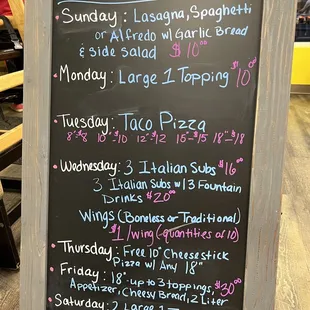 Sunday: Lasagna, Spaghetti
or Alfredo w/ Garlic Bread
& side Salad $10.00
Monday: Large 1 Topping $10.00
Tuesday: Taco Pizza
8"-$8 10"-$10 12"-$12 15"-$15 18"-$18
Wednesday: 3 Italian Subs $16.00
3 Italian Subs w/ 3 Fountain
Drinks $20.00
Wings (Boneless or Traditional)
$1/wing (quantities of 10)
Thursday: Free 10" Cheesestick
Pizza w/ Any 18"
Friday: 18" up to 3 toppings,
Appetizer, Cheesy Bread, 2 Liter $30.00
Saturday: 2 Large 1